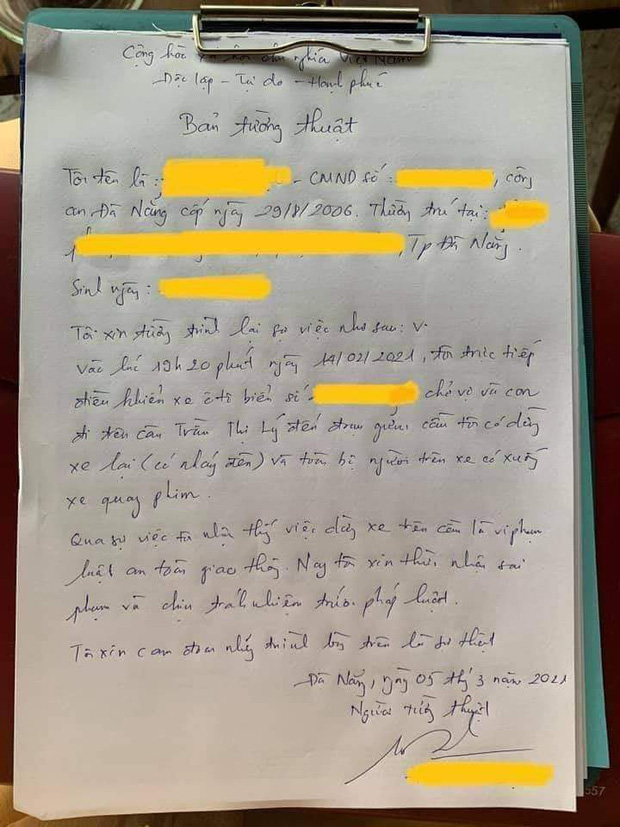 Cộng hòa xã hội chủ nghĩa Việt Nam
Độc lập - Tự do - Hạnh phúc
Bản tường thuật
Tôi tên là: - CMND số: , công
an Đà Nẵng cấp ngày 29/8/2006. Thường trú tại:
, Tp Đà Nẵng.
Sinh ngày:
Tôi xin tường trình lại sự việc như sau:
Vào lúc 19h20 phút ngày 14/02/2021, tôi trực tiếp
điều khiển xe ô tô biển số chở vợ và con
đi trên cầu Trần Thị Lý đến đoạn giữa cầu tôi có dừng
xe lại (có nháy đèn) và toàn bộ người trên xe có xuống
xe quay phim.
Qua sự việc tôi nhận thấy việc dừng xe trên cầu là vi phạm
luật an toàn giao thông. Nay tôi xin thừa nhận sai
phạm và chịu trách nhiệm trước pháp luật.
Tôi xin cam đoan những trình bày trên là sự thật
Đà Nẵng, ngày 05 thg 3 năm 2021
Người tường thuật
557